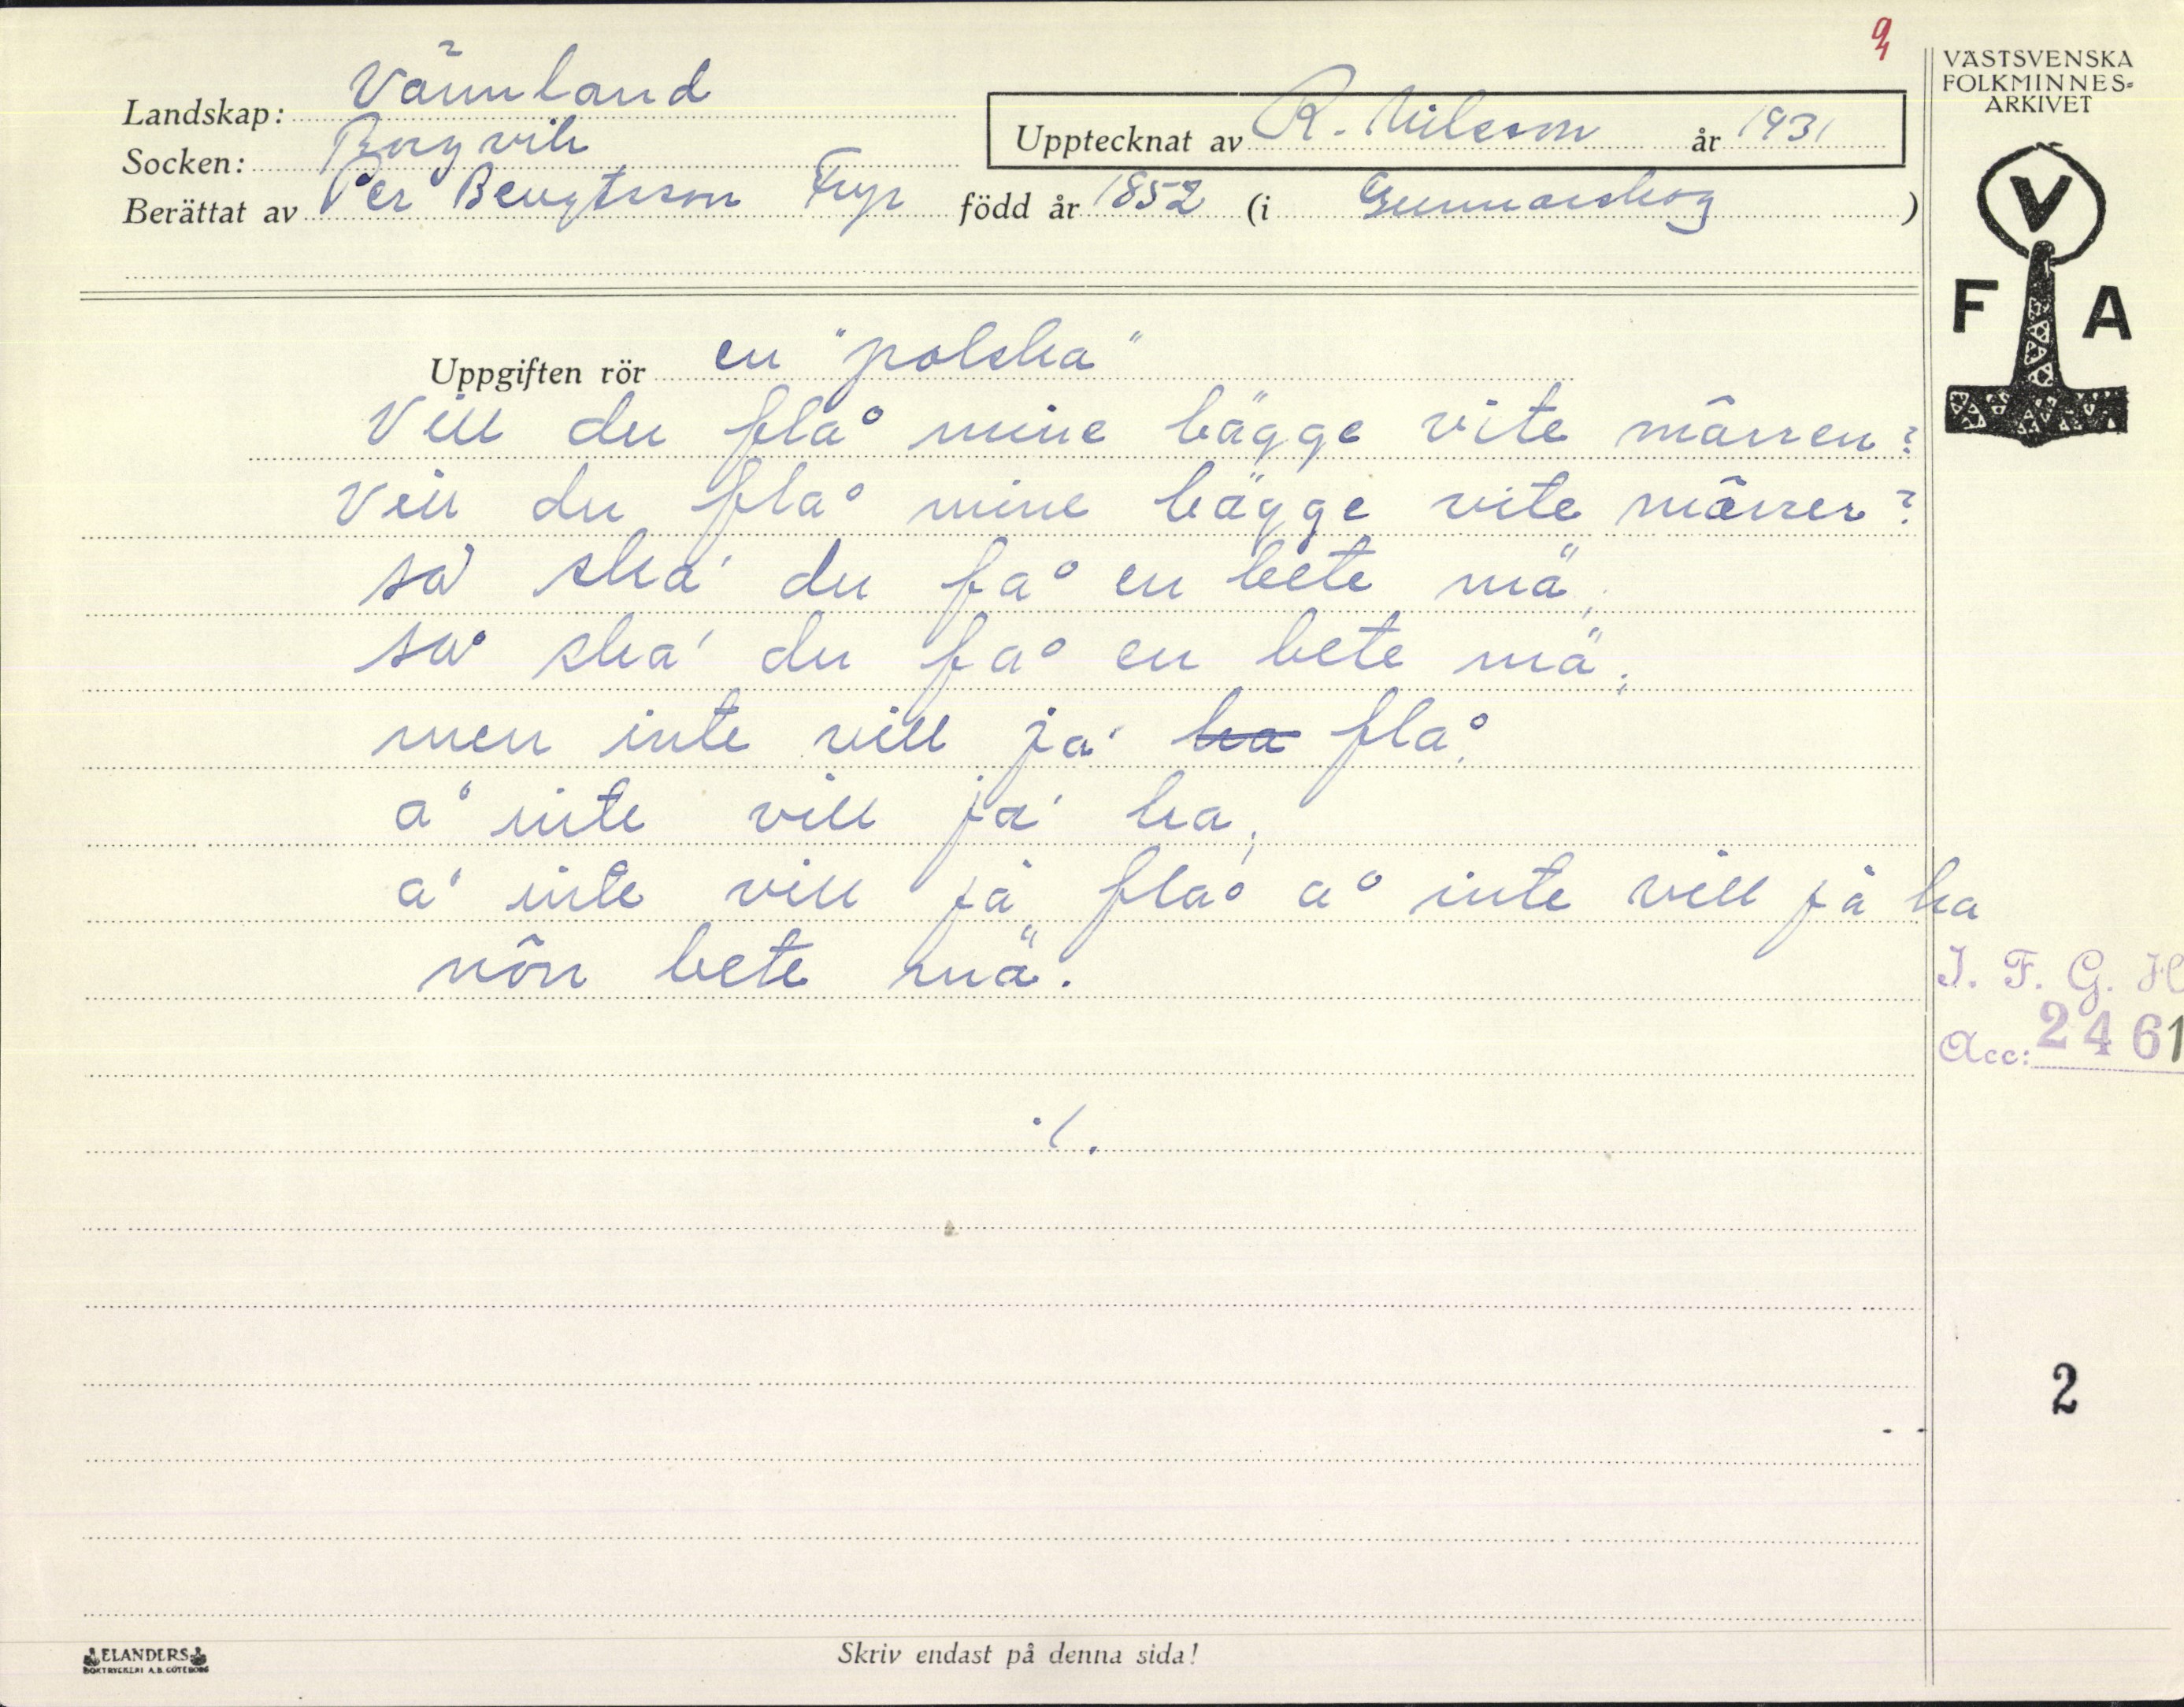 9
VÄSTSVENSKA
FOLKMINNES-
ARKIVET
Landskap: Värmland
Socken: Borgvik
Upptecknat av R. Nilsson år 1931
Berättat av Per Bengtsson Fryx född år 1852 (i Gunnarskog )
V
F A
Uppgiften rör en "polska"
Vill du flå mine bägge vite märren?
Vill du flå mine bägge vite märrer?
så ska' du få en bete mä,
så ska' du få en bete mä;
men inte vill ja' ha flå,
å inte vill ja' ha,
å inte vill ja' flå å inte vill ja' ha
nôn bete mä.
I. F. G. H
Acc: 2461
./.
2
ELANDERS
BOKTRYCKERI A.B. GÖTEBORG
Skriv endast på denna sida!